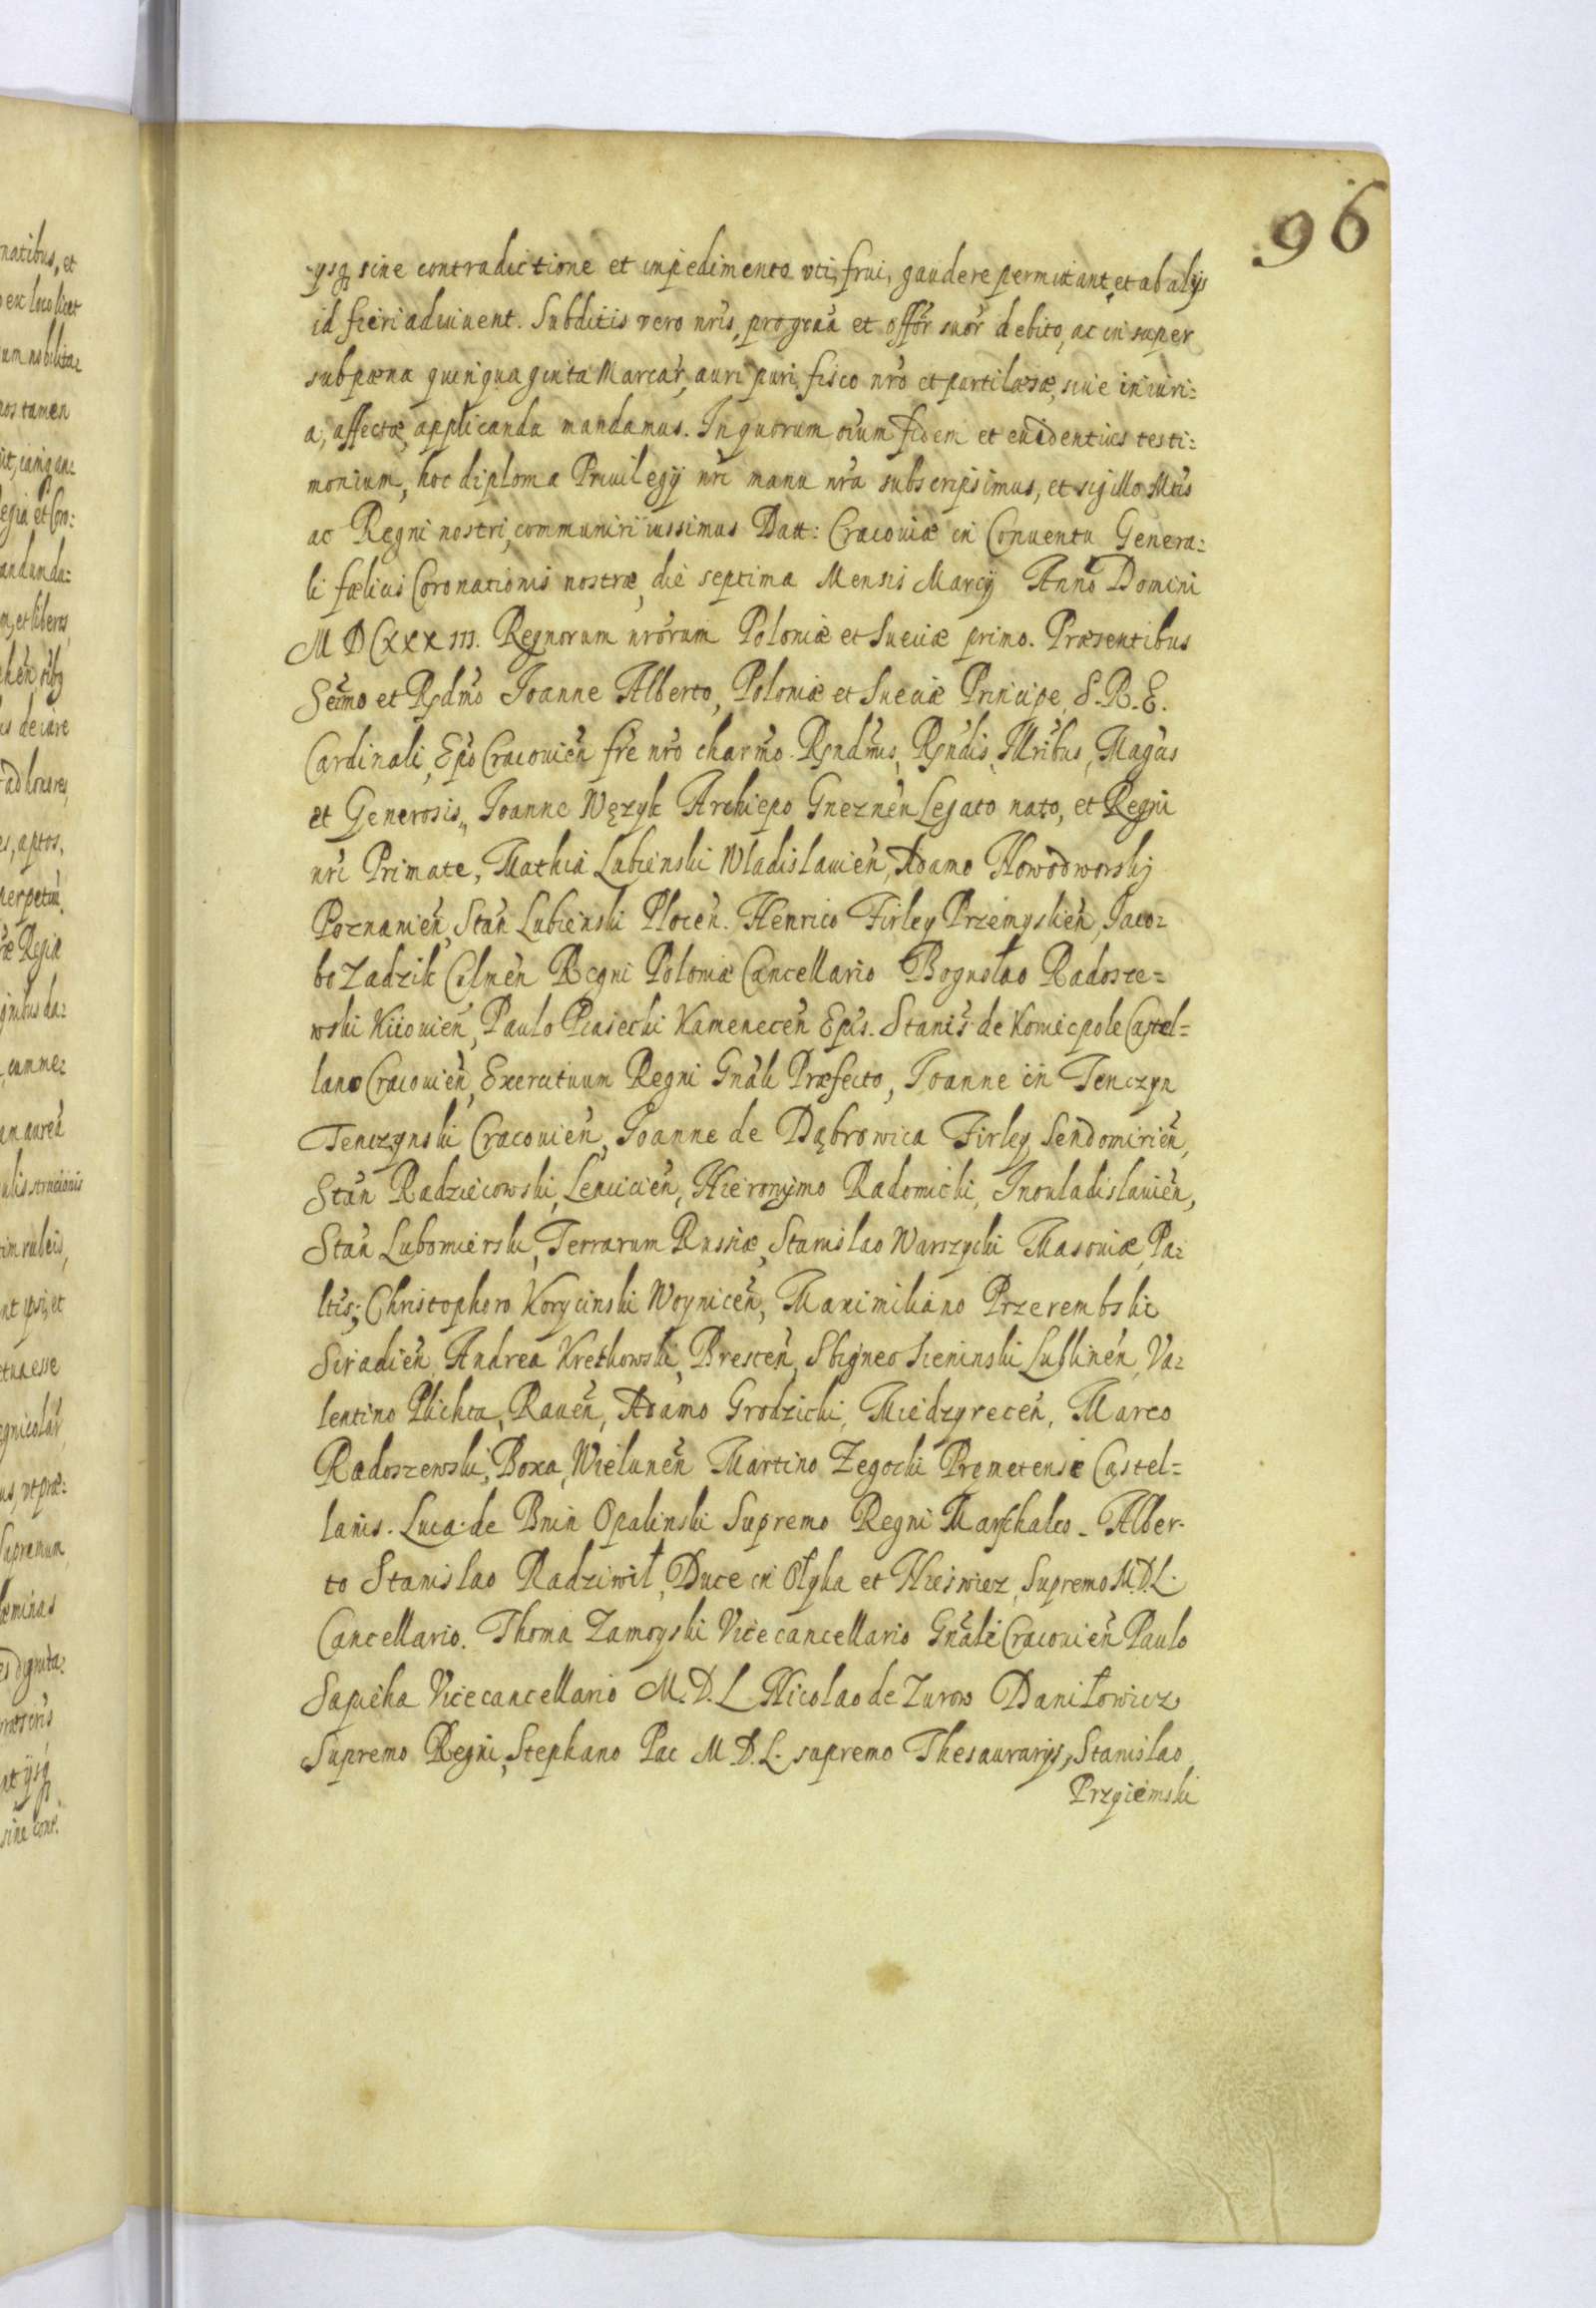 96
ysq sine contradictione et inpedimento vti, frui, gaudere permittant et ab alijs
id fieri adiuuent. Subditis vero nris, pro gratia et offõr suõr debito, ac in super
sub pœna quinquaginta Marcar̃, auri puri, fisco nrõ et parti læsæ, siue iniuri:
a, affectæ, applicanda mandamus. In quorum oĩum fidem et euidentius testi:
monium, hoc diploma Priuilegij nrĩ manu nrã subscripsimus, et sigillo Mtis
ac Regni nostri, communiri iussimus Datt: Cracouiæ in Conuentu Genera:
li fœlicis Coronationis nostræ, die septima Mensis Marcij Anno Domini
MDCXXXIII. Regnorum nrõrum Poloniæ et Sueciæ primo. Præsentibus
Seĩmo et Rndm̃o Joanne Alberto, Poloniæ et Sueciæ Principe, S. R. E.
Cardinali, Epõ Cracouieñ frẽ nrõ charm̃o. Rendm̃is, Rendis, Illribus, Magcis
et Generosis, Joanne Wężyk Archiepo Gnezneñ Legato nato, et Regni
nrĩ Primate, Mathia Lubienski Wladislauieñ, Adamo Nowodworskj
Poznanieñ, Stañ Lubienski Ploceñ. Henrico Firley Przemyslieñ, Jaco=
bo Zadzik Culmeñ Regni Poloniæ Cancellario Bogusłao Radosze=
wski Kiiouieñ, Paulo Piasecki Kameneceñ Epis. Stanis̃ de Koniecpole Castel=
lano Cracouieñ, Exercituum Regni Gnãli Præfecto, Joanne in Tenczyn
Tenczynski Cracouieñ, Joanne de Dąbrowica Firley Sendomirieñ,
Stañ Radzieiowski, Lencicieñ, Hieronymo Radomicki, Inouladislauieñ,
Stañ Lubomierski, Terrarum Russiæ, Stanislao Warszycki Masouiæ, Pa=
ltis; Christophoro Korycinski Woyniceñ, Maximiliano Przerembski
Siradieñ, Andrea Kretkowski, Bresteñ, Sbigneo Sieninski Lublineñ, Va=
lentino Plichta, Raueñ, Adamo Grodzicki, Miedzyreceñ, Marco
Radoszewski, Boxa, Wieluneñ Martino Zegocki Premetensi Castel=
lanis. Luca de Bnin Opalinski Supremo Regni Marschalco. Alber-
to Stanislao Radziwił, Duce in Ołyka et Nieswiez, Supremo M.D.L.
Cancellario. Thoma Zamoyski Vicecancellario Gnãli Cracouieñ Paulo
Sapieha Vicecancellario M.D.L. Nicolao de Zurow Daniłowicz
Supremo Regni, Stephano Pac M D.L. supremo Thesaurarijs, Stanislao
Przyiemski